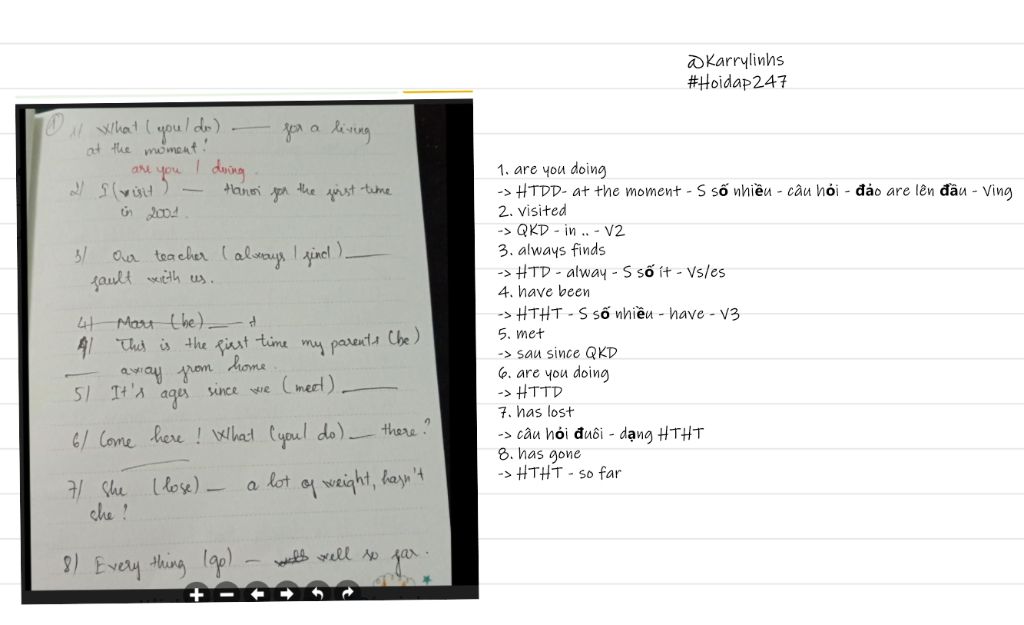 @Karrylinhs
#Hoidap247
1
1/ What (you/do) ___ for a living
at the moment?
are you / doing.
2/ I (visit) — Hanoi for the first time
in 2001.
3/ Our teacher (always / find) ___
fault with us.
4/
4/ This is the first time my parents (be)
___ away from home.
5/ It's ages since we (meet) ___
6/ Come here! What (you/do) — there?
7/ She (lose) — a lot of weight, hasn't
she?
8/ Every thing (go) — well so far.
1. are you doing
-> HTDD- at the moment - S số nhiều - câu hỏi - đảo are lên đầu - Ving
2. visited
-> QKD - in .. - V2
3. always finds
-> HTD - alway - S số ít - Vs/es
4. have been
-> HTHT - S số nhiều - have - V3
5. met
-> sau since QKD
6. are you doing
-> HTTD
7. has lost
-> câu hỏi đuôi - dạng HTHT
8. has gone
-> HTHT - so far